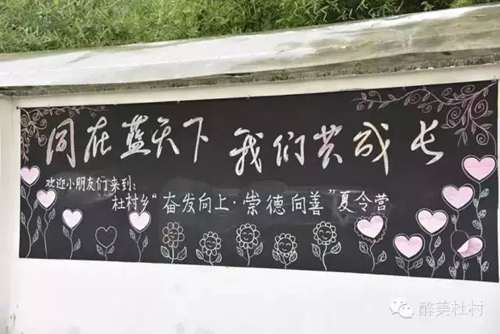 同在蓝天下 我们共成长
欢迎小朋友们来到:
杜村乡“奋发向上·崇德向善”夏令营
醉美杜村